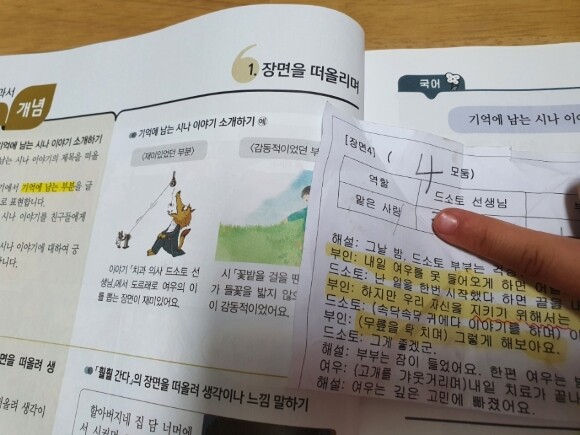 따서
개념
1. 장면을 떠올리며
기억에 남는 시나 이야기 소개하기
남는 시나 이야기의 제목을 떠올
기에서 기억에 남는 부분을 글
로 표현합니다.
시나 이야기를 친구들에게
시나 이야기에 대하여 궁
기억에 남는 시나 이야기 소개하기 예
<재미있었던 부분>
<감동적이었던 부
이야기 「치과 의사 드소토 선
생님」에서 도르래로 여우의 이
를 뽑는 장면이 재미있어요.
시 「꽃밭을 걸을 땐
가 들꽃을 밟지 않으
이 감동적이었어요.
면을 떠올려 생
떠올려 생각이
「훨훨 간다」의 장면을 떠올려 생각이나 느낌 말하기
할아버지네 집 담 너머에
서 시커먼
국어
기억에 남는 시나 이야
[장면4] ( 4 모둠)
역할
드소토 선생님
맡은 사람
해설: 그날 밤, 드소토 부부는
부인: 내일 여우를 못 들어오게 하면
드소토: 난 일을 한번 시작했다 하면 끝을
부인: 하지만 우리 자신을 지키기 위해서는
드소토: (속닥속닥 귀에다 이야기를 하며) 이
부인: (무릎을 확 치며) 그렇게 해보아요.
드소토: 그게 좋겠군.
해설: 부부는 잠이 들었어요. 한편 여우는
여우: (고개를 갸웃거리며)내일 치료가 끝나
해설: 여우는 깊은 고민에 빠졌어요.